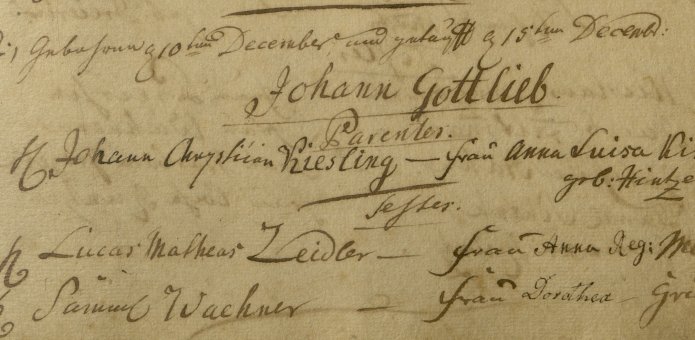 Gebohren d 10ten December und getauft d 15ten Decembr:
Johann Gottlieb
Parentes.
H Johann Chrystian Kiesling — frau Anna Luisa Ki
geb: Hintze
Testes.
H Lucas Matheas Zeidler — frau Anna Reg:
Samuel Wachner — frau Dorothea